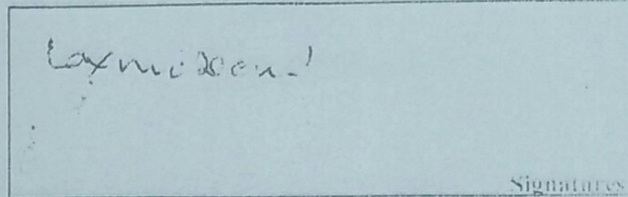 Laxmi Devi
Signatures